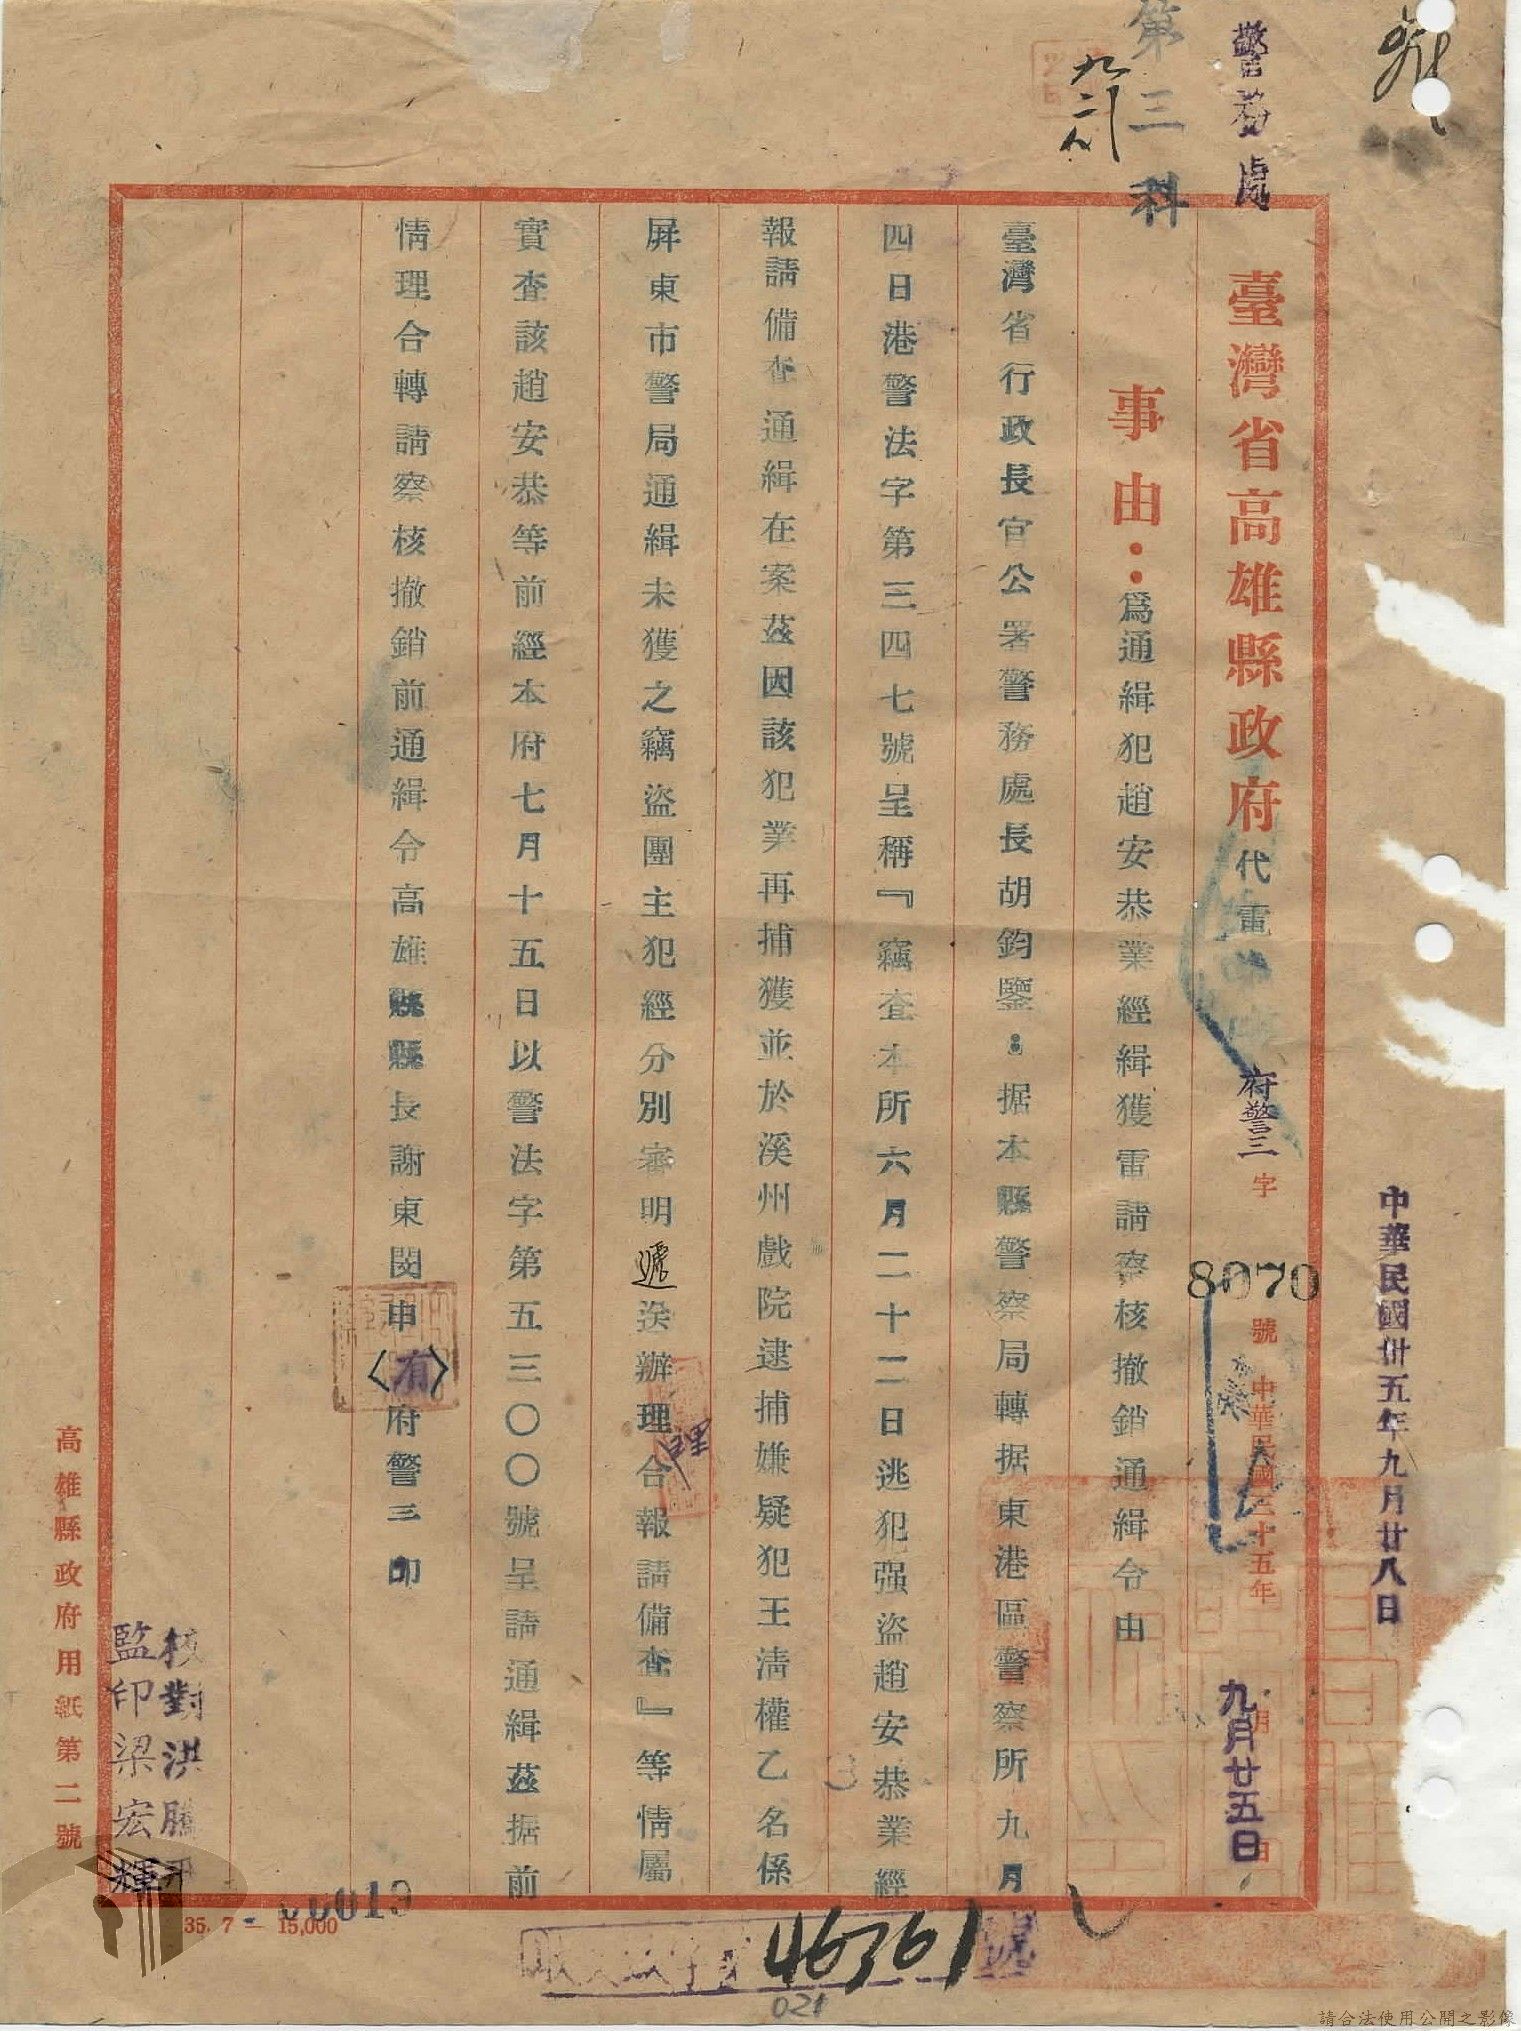 中華民國卅五年九月廿八日
警務處
第三科
臺灣省高雄縣政府代電
府警三字
8070號
中華民國三十五年
九月廿五日
事由：為通緝犯趙安恭業經緝獲電請察核撤銷通緝令由
臺灣省行政長官公署警務處長胡鈞鑒：据本縣警察局轉据東港區警察所九月
四日港警法字第三四七號呈稱『竊查本所六月二十二日逃犯强盜趙安恭業經
報請備查通緝在案茲因該犯業再捕獲並於溪州戲院逮捕嫌疑犯王清權乙名係
屏東市警局通緝未獲之竊盜團主犯經分別審明遞送辦理合報請備查』等情屬
理
實查該趙安恭等前經本府七月十五日以警法字第五三〇〇號呈請通緝茲据前
情理合轉請察核撤銷前通緝令高雄縣縣長謝東閔申（有）府警三印
核對洪騰
監印梁宏輝
高雄縣政府用紙第二號
35. 7 — 15,000
46361
021
請合法使用公開之影像